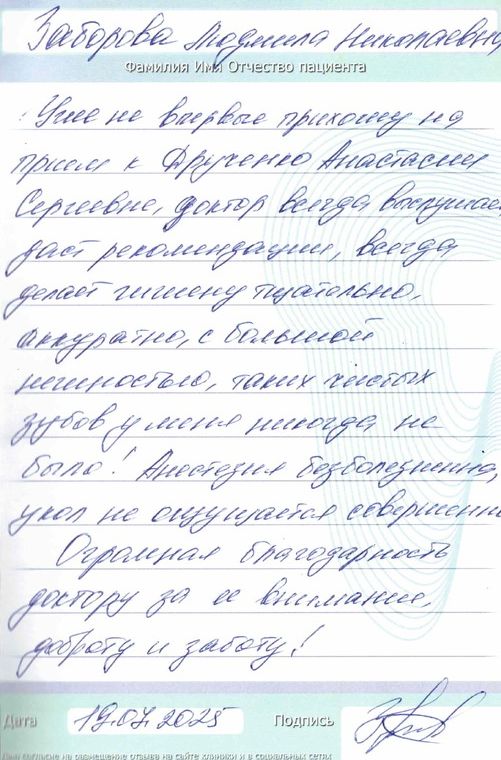 Заборова Людмила Николаевна
Фамилия Имя Отчество пациента
Уже не впервые прихожу на
прием к Друченко Анастасии
Сергеевне, доктор всегда выслушает
даст рекомендации, всегда
делает гигиену тщательно,
аккуратно, с большой
нежностью, таких чистых
зубов у меня никогда не
было! Анестезия безболезненна,
укол не ощущается совершенно
Огромная благодарность
доктору за ее внимание,
доброту и заботу!
Дата 19.07.2025 Подпись
Даю согласие на размещение отзыва на сайте клиники и в социальных сетях